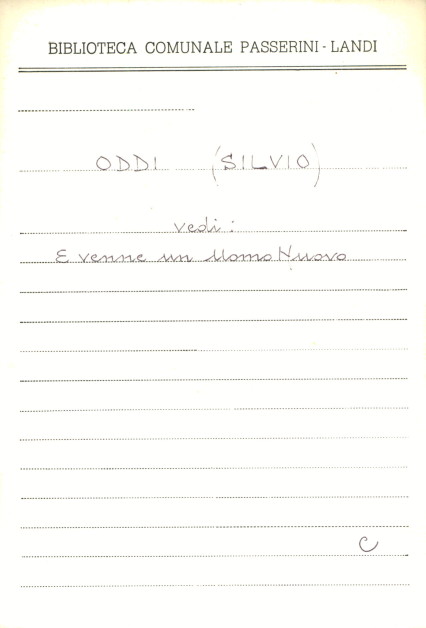 BIBLIOTECA COMUNALE PASSERINI - LANDI
ODDI (SILVIO)
vedi:
E venne un Uomo Nuovo
C